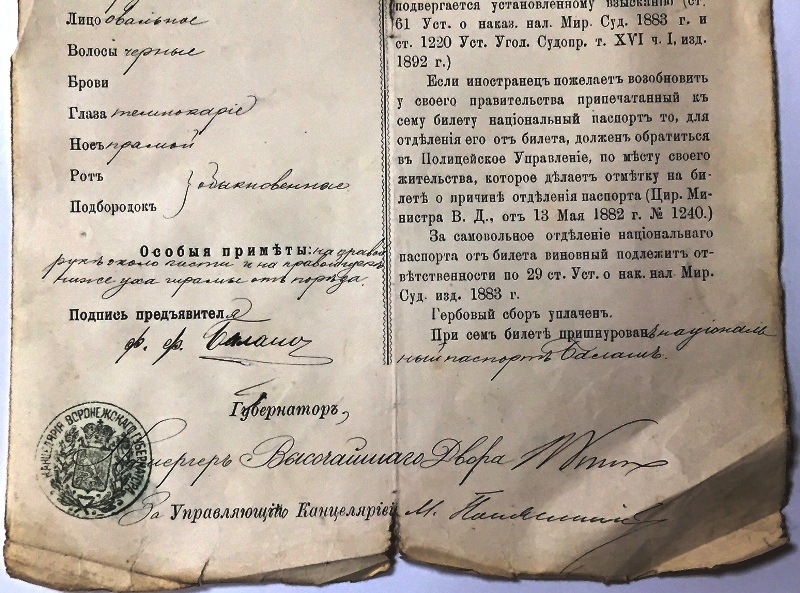 Лицо овальное
Волосы черные
Брови
Глаза темнокаріе
Носъ прямой
Ротъ
обыкновенные
Подбородокъ
Особыя примѣты: на правой
рукѣ около кисти и на правой щекѣ
ниже уха шрамы отъ порѣза.
Подпись предъявителя
ф. ф.
подвергается установленному взысканію (ст.
61 Уст. о наказ. нал. Мир. Суд. 1883 г. и
ст. 1220 Уст. Угол. Судопр. т. XVI ч. I, изд.
1892 г.)
Если иностранецъ пожелаетъ возобновить
у своего правительства припечатанный къ
сему билету національный паспортъ то, для
отдѣленія его отъ билета, долженъ обратиться
въ Полицейское Управленіе, по мѣсту своего
жительства, которое дѣлаетъ отмѣтку на би-
летѣ о причинѣ отдѣленія паспорта (Цир. Ми-
нистра В. Д., отъ 13 Мая 1882 г. № 1240.)
За самовольное отдѣленіе національнаго
паспорта отъ билета виновный подлежитъ от-
вѣтственности по 29 ст. Уст. о нак. нал Мир.
Суд. изд. 1883 г.
Гербовый сборъ уплаченъ.
При семъ билетѣ пришнурованъ національ
ный паспортъ
Губернаторъ,
Камергеръ Высочайшаго Двора
За Управляющаго Канцеляріей М.
КАНЦЕЛЯРІЯ ВОРОНЕЖСКАГО ГУБЕРНАТОРА